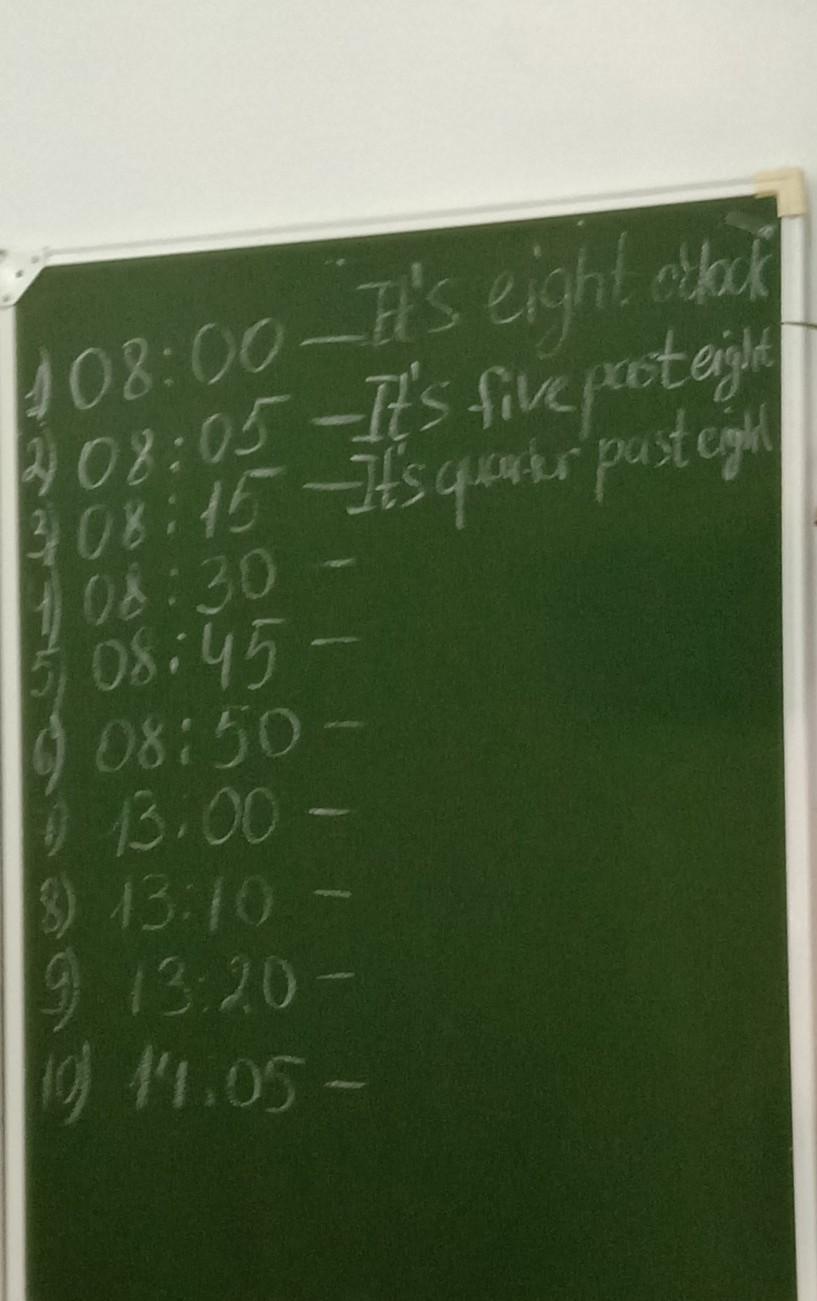 1) 08:00 – It's eight o'clock
2) 08:05 – It's five past eight
3) 08:15 – It's quarter past eight
4) 08:30 –
5) 08:45 –
6) 08:50 –
7) 13:00 –
8) 13:10 –
9) 13:20 –
10) 14:05 –